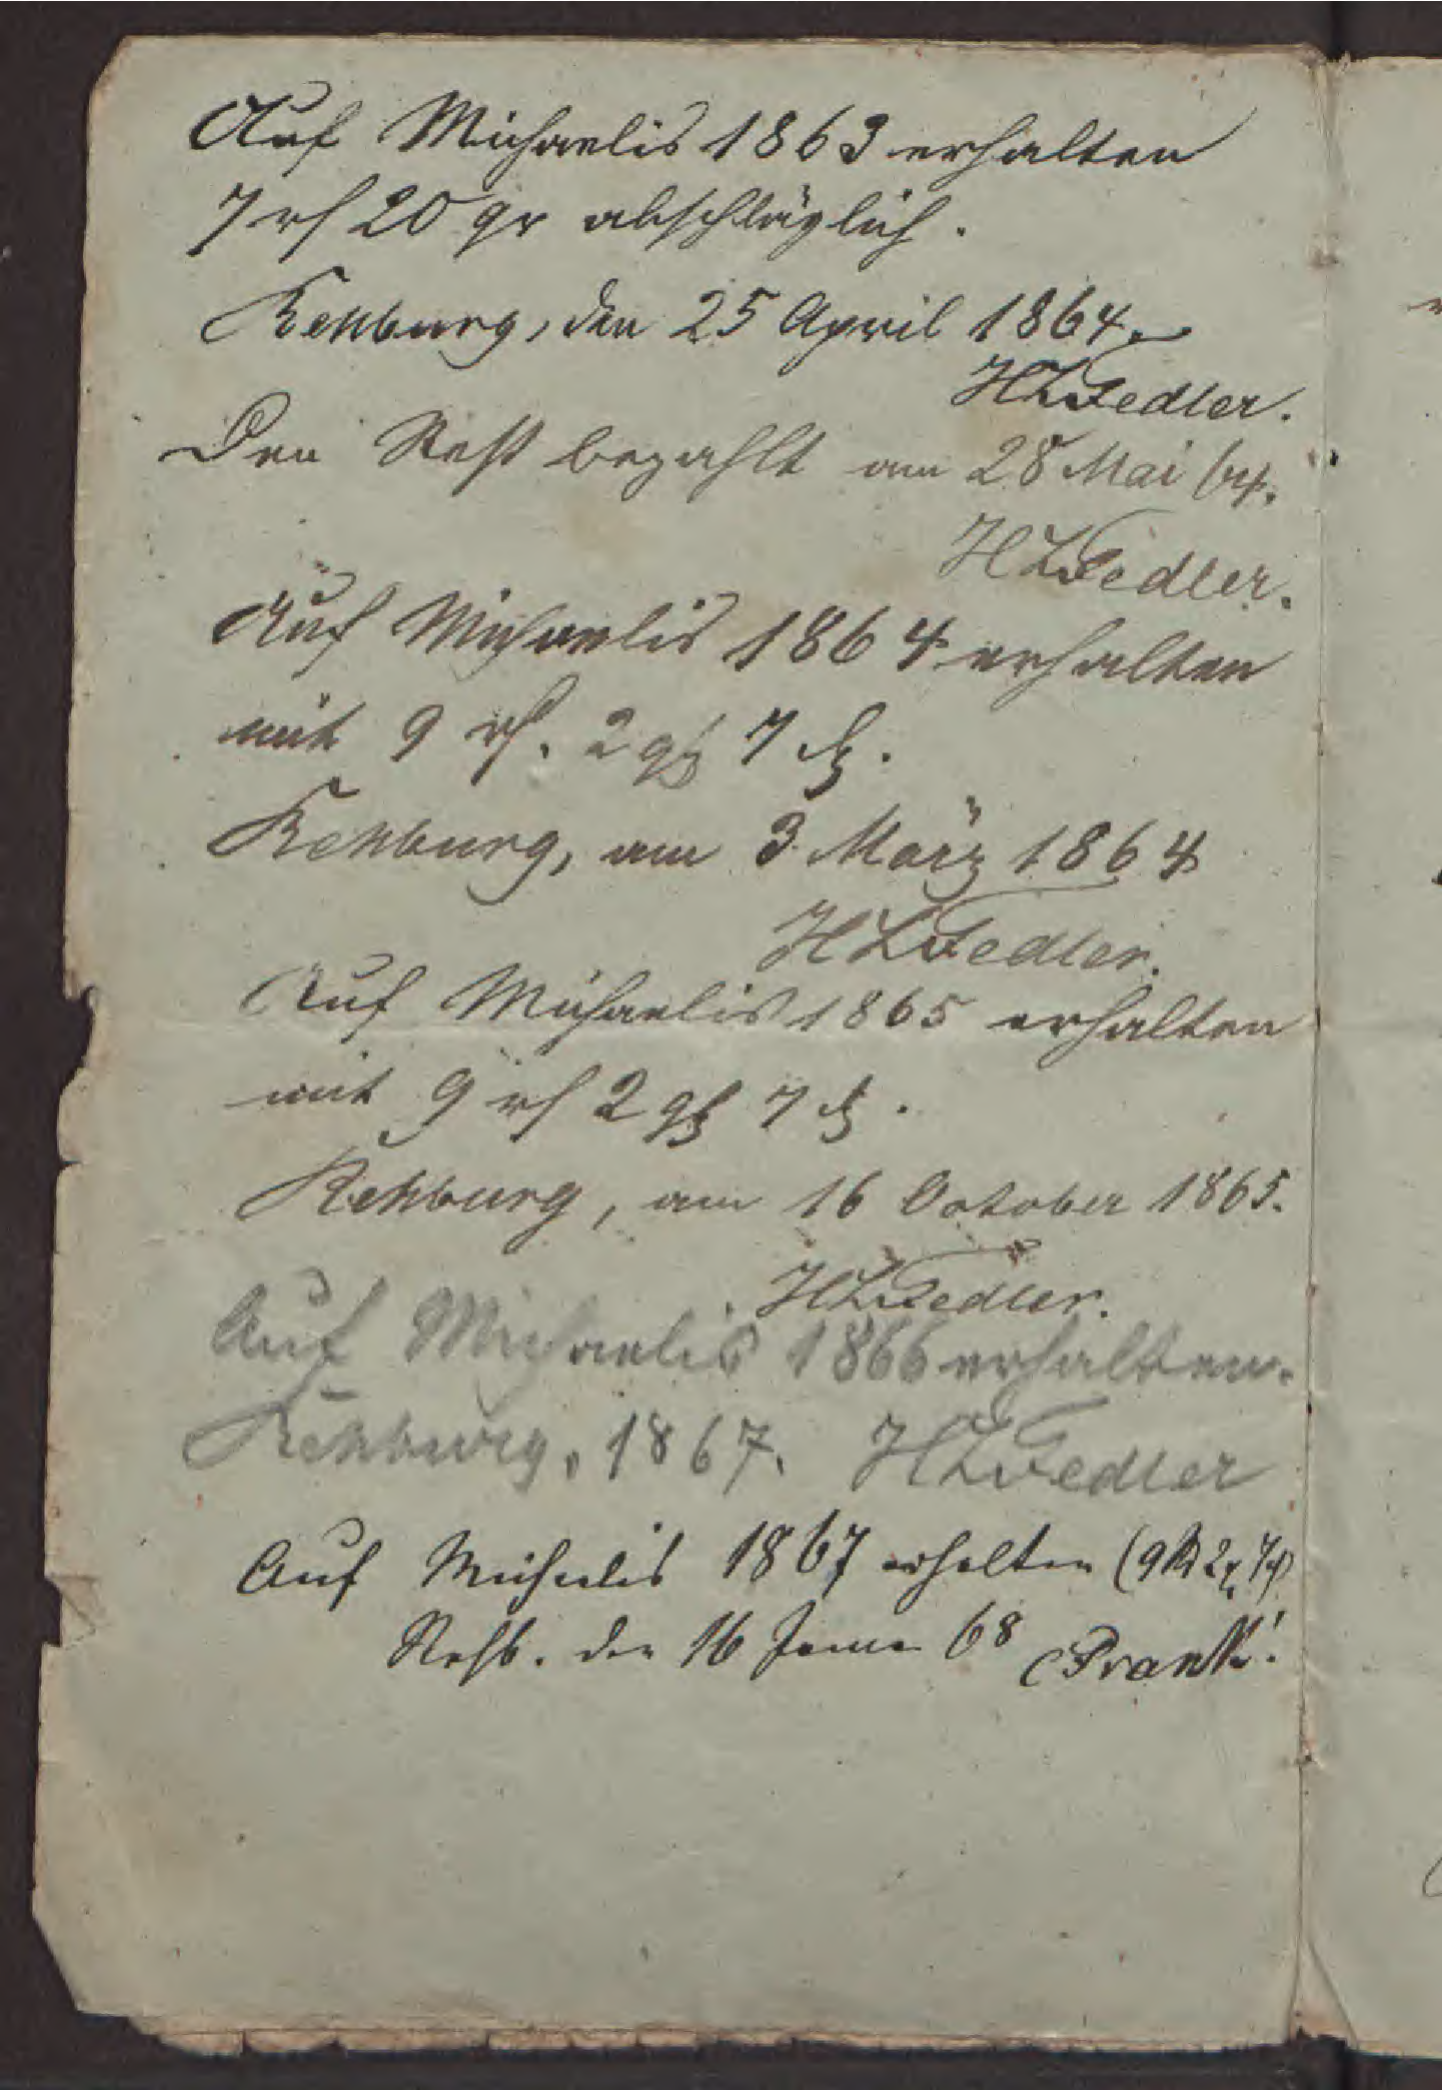 Auf Michaelis 1863 erhalten
7 rℓ 20 gr abschläglich.
Rehburg, den 25 April 1864.
HLFedler.
Den Rest bezahlt am 28 Mai 64.
HLFedler.
Auf Michaelis 1864 erhalten
mit 9 rℓ. 2 gg 7 ₰.
Rehburg, am 3 März 1864
HLFedler.
Auf Michaelis 1865 erhalten
mit 9 rℓ 2 gg 7 ₰.
Rehburg, am 16 October 1865.
HLFedler.
Auf Michaelis 1866 erhalten.
Rehburg, 1867. HLFedler
Auf Michaelis 1867 erhalten (9 2 7
Rehb. den 16 68